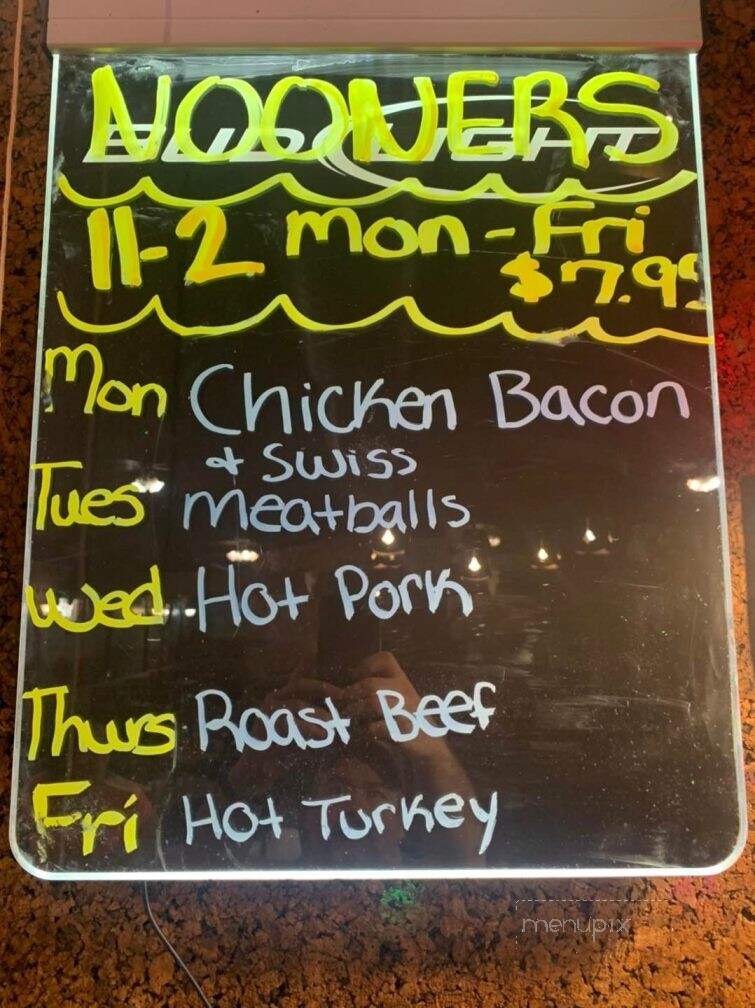 NOONERS
BUD LIGHT
11-2 Mon-Fri
$7.99
Mon Chicken Bacon
& Swiss
Tues Meatballs
Wed Hot Pork
Thurs Roast Beef
Fri Hot Turkey
menupix